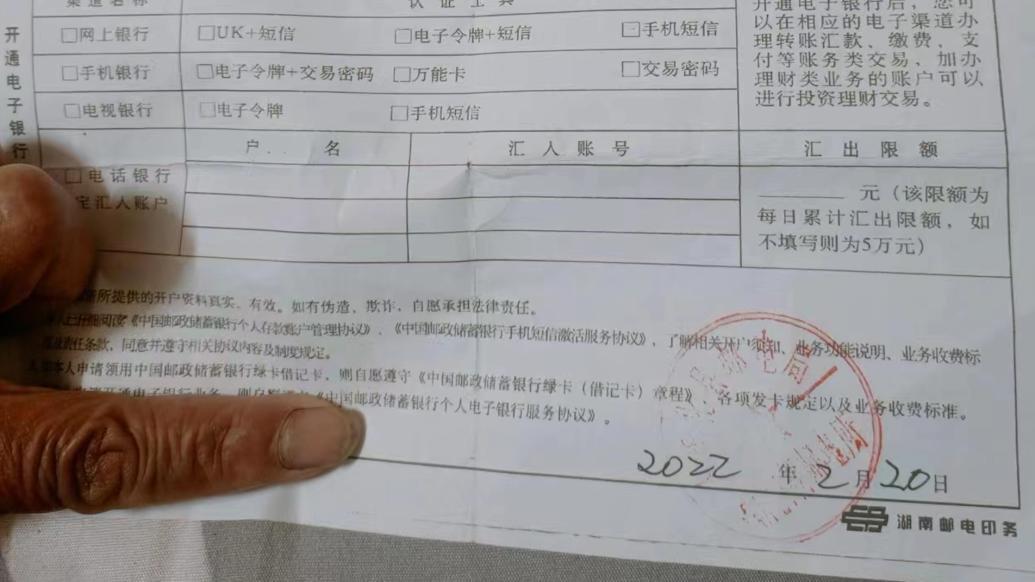 渠道名称 认证工具
开通电子银行
□网上银行 □UK+短信 □电子令牌+短信 □手机短信
□手机银行 □电子令牌+交易密码 □万能卡 □交易密码
□电视银行 □电子令牌 □手机短信
开通电子银行后，您可
以在相应的电子渠道办
理转账汇款、缴费、支
付等账务类交易，加办
理财类业务的账户可以
进行投资理财交易。
户 名 汇入账号 汇出限额
□电话银行
定汇入账户
元（该限额为
每日累计汇出限额，如
不填写则为5万元）
所提供的开户资料真实、有效。如有伪造、欺诈，自愿承担法律责任。
《中国邮政储蓄银行个人存款账户管理协议》、《中国邮政储蓄银行手机短信激活服务协议》，了解相关开户须知、业务功能说明、业务收费标
责任条款，同意并遵守相关协议内容及制度规定。
本人申请领用中国邮政储蓄银行绿卡借记卡，则自愿遵守《中国邮政储蓄银行绿卡（借记卡）章程》、各项发卡规定以及业务收费标准。
开通电子银行业务，则自愿《中国邮政储蓄银行个人电子银行服务协议》。
2022 年 2 月 20 日
湖南邮电印务